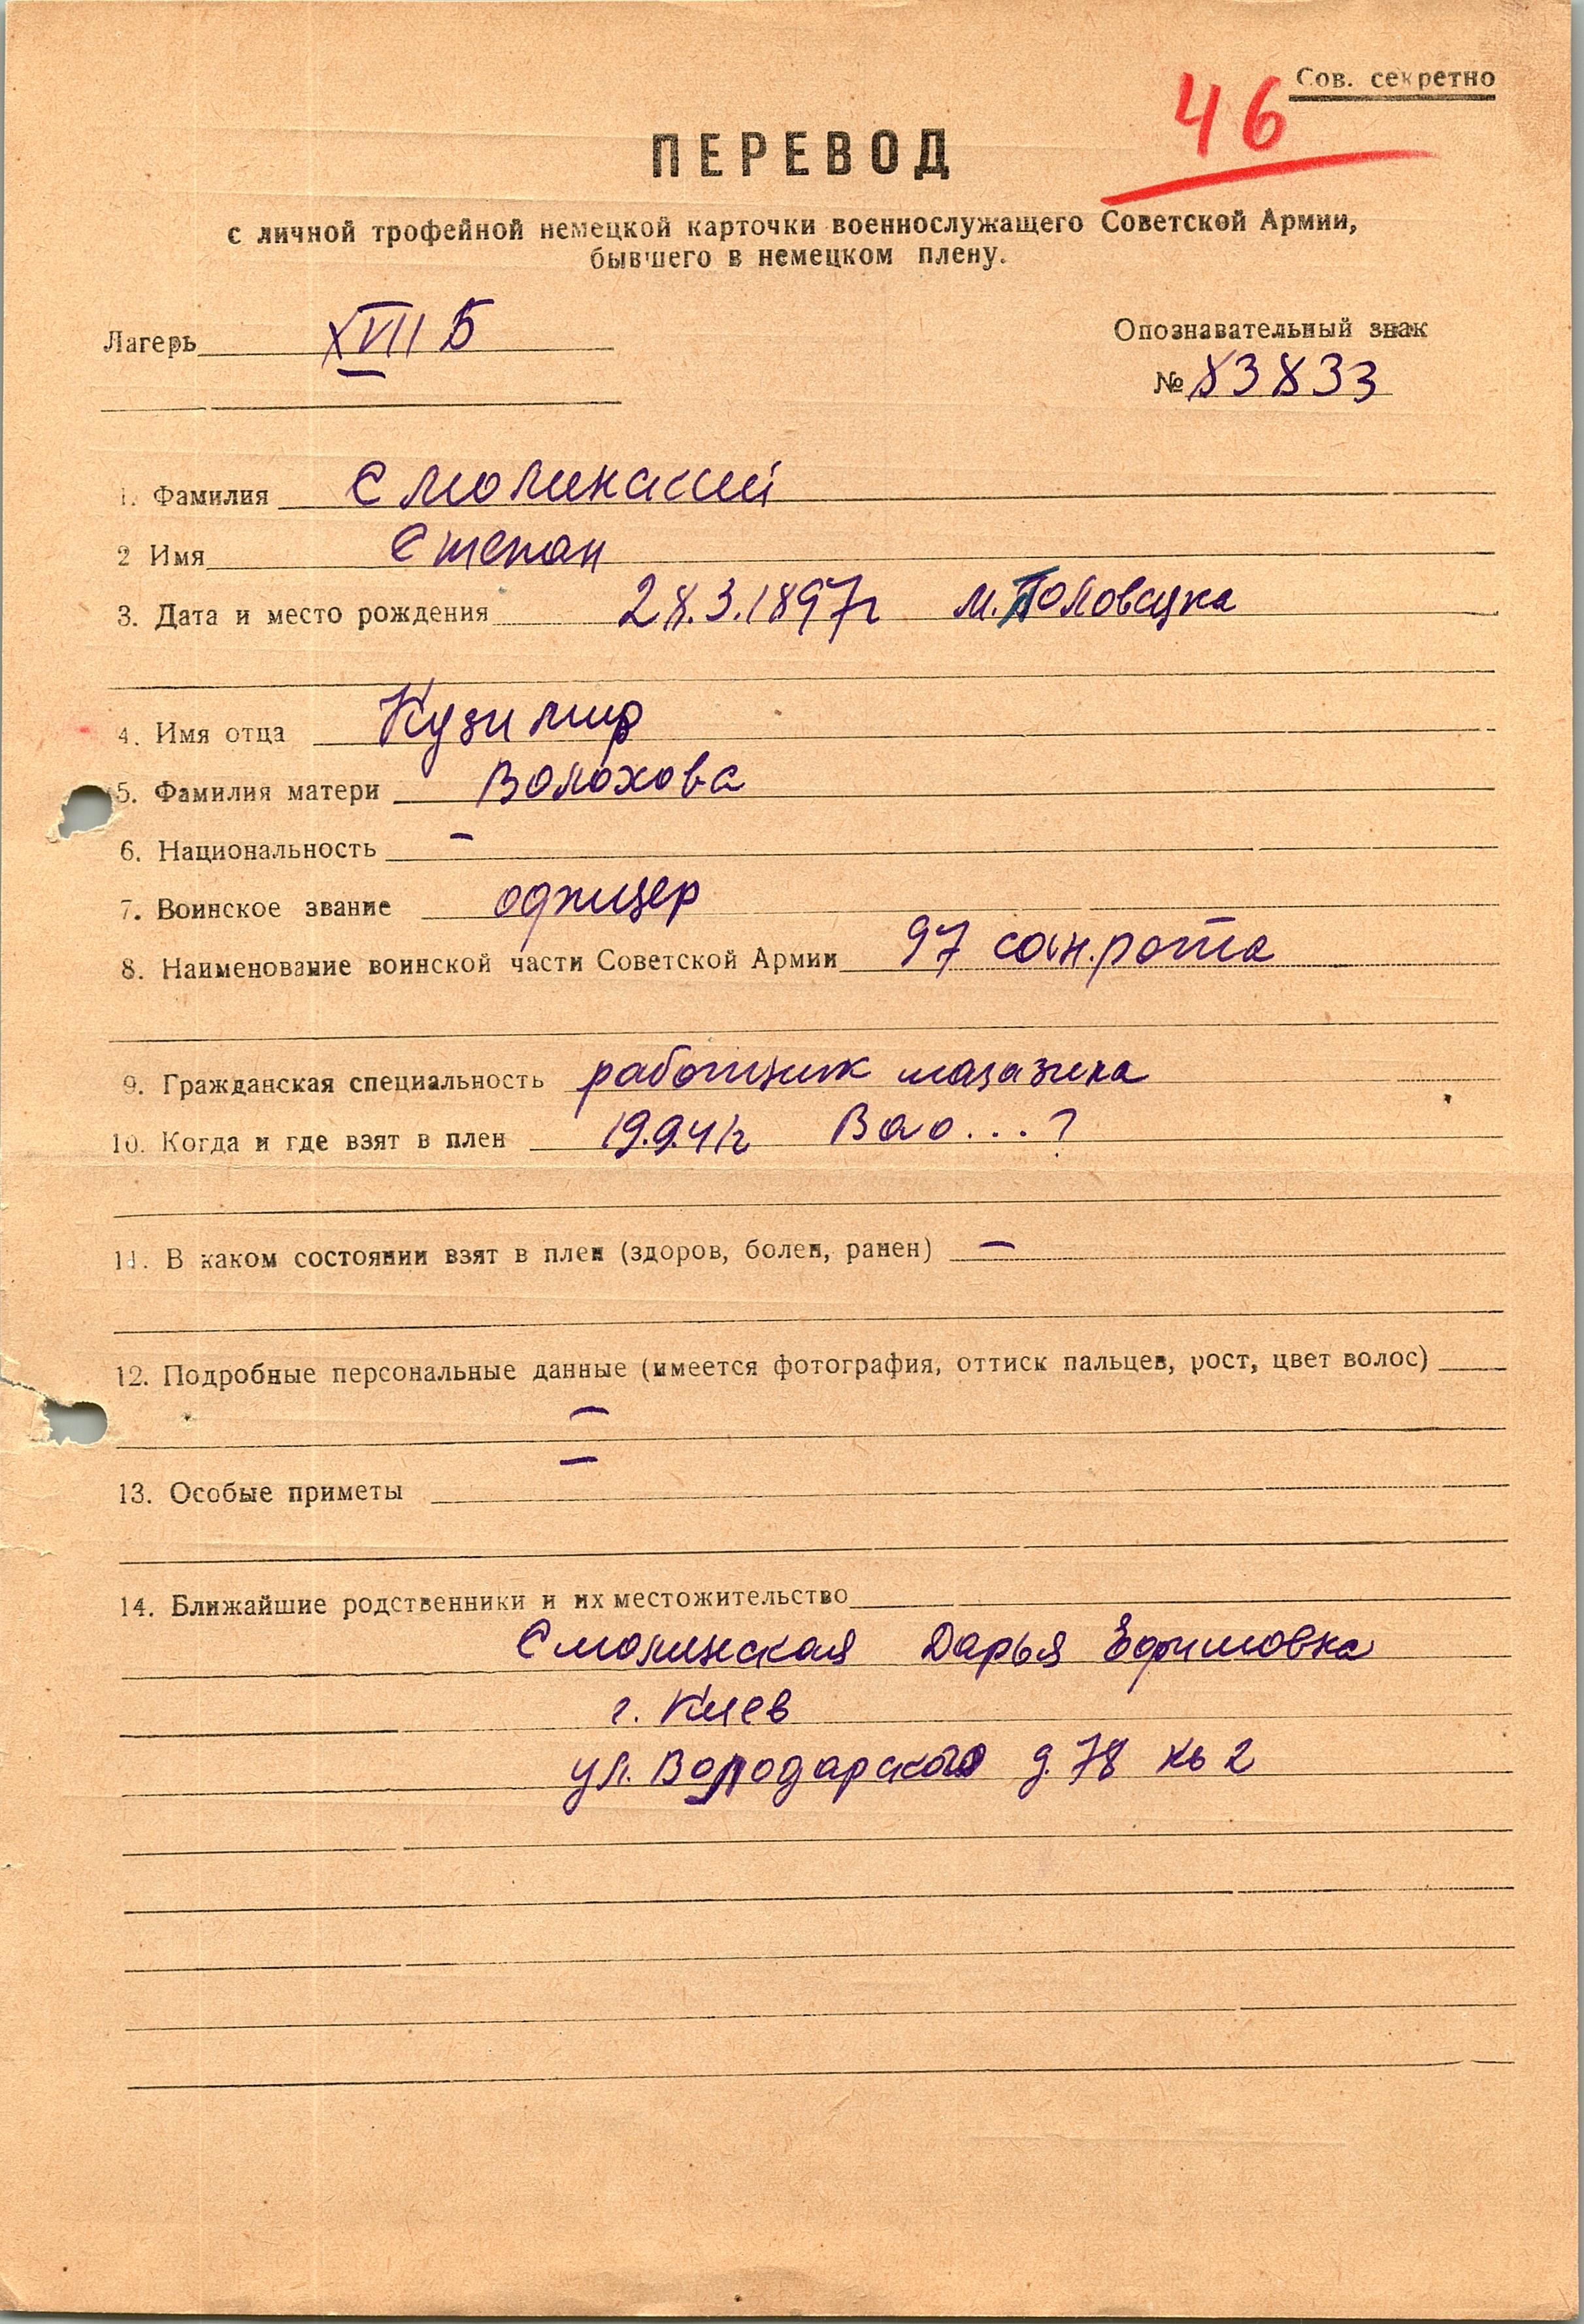 Сов. секретно
46
ПЕРЕВОД
с личной трофейной немецкой карточки военнослужащего Советской Армии,
бывшего в немецком плену.
Лагерь XVII Б
Опознавательный знак
№ 83833
1. Фамилия Смолинский
2 Имя Степан
3. Дата и место рождения 28.3.1897г м. Половецка
4. Имя отца Кузимир
5. Фамилия матери Волохова
6. Национальность –
7. Воинское звание офицер
8. Наименование воинской части Советской Армии 97 сан.рота
9. Гражданская специальность работник магазина
10. Когда и где взят в плен 19.9.41г Вао...?
11. В каком состоянии взят в плен (здоров, болен, ранен) –
12. Подробные персональные данные (имеется фотография, оттиск пальцев, рост, цвет волос)
–
–
13. Особые приметы
14. Ближайшие родственники и их местожительство
Смолинская Дарья Ефимовна
г. Киев
ул. Володарского д. 78 кв 2